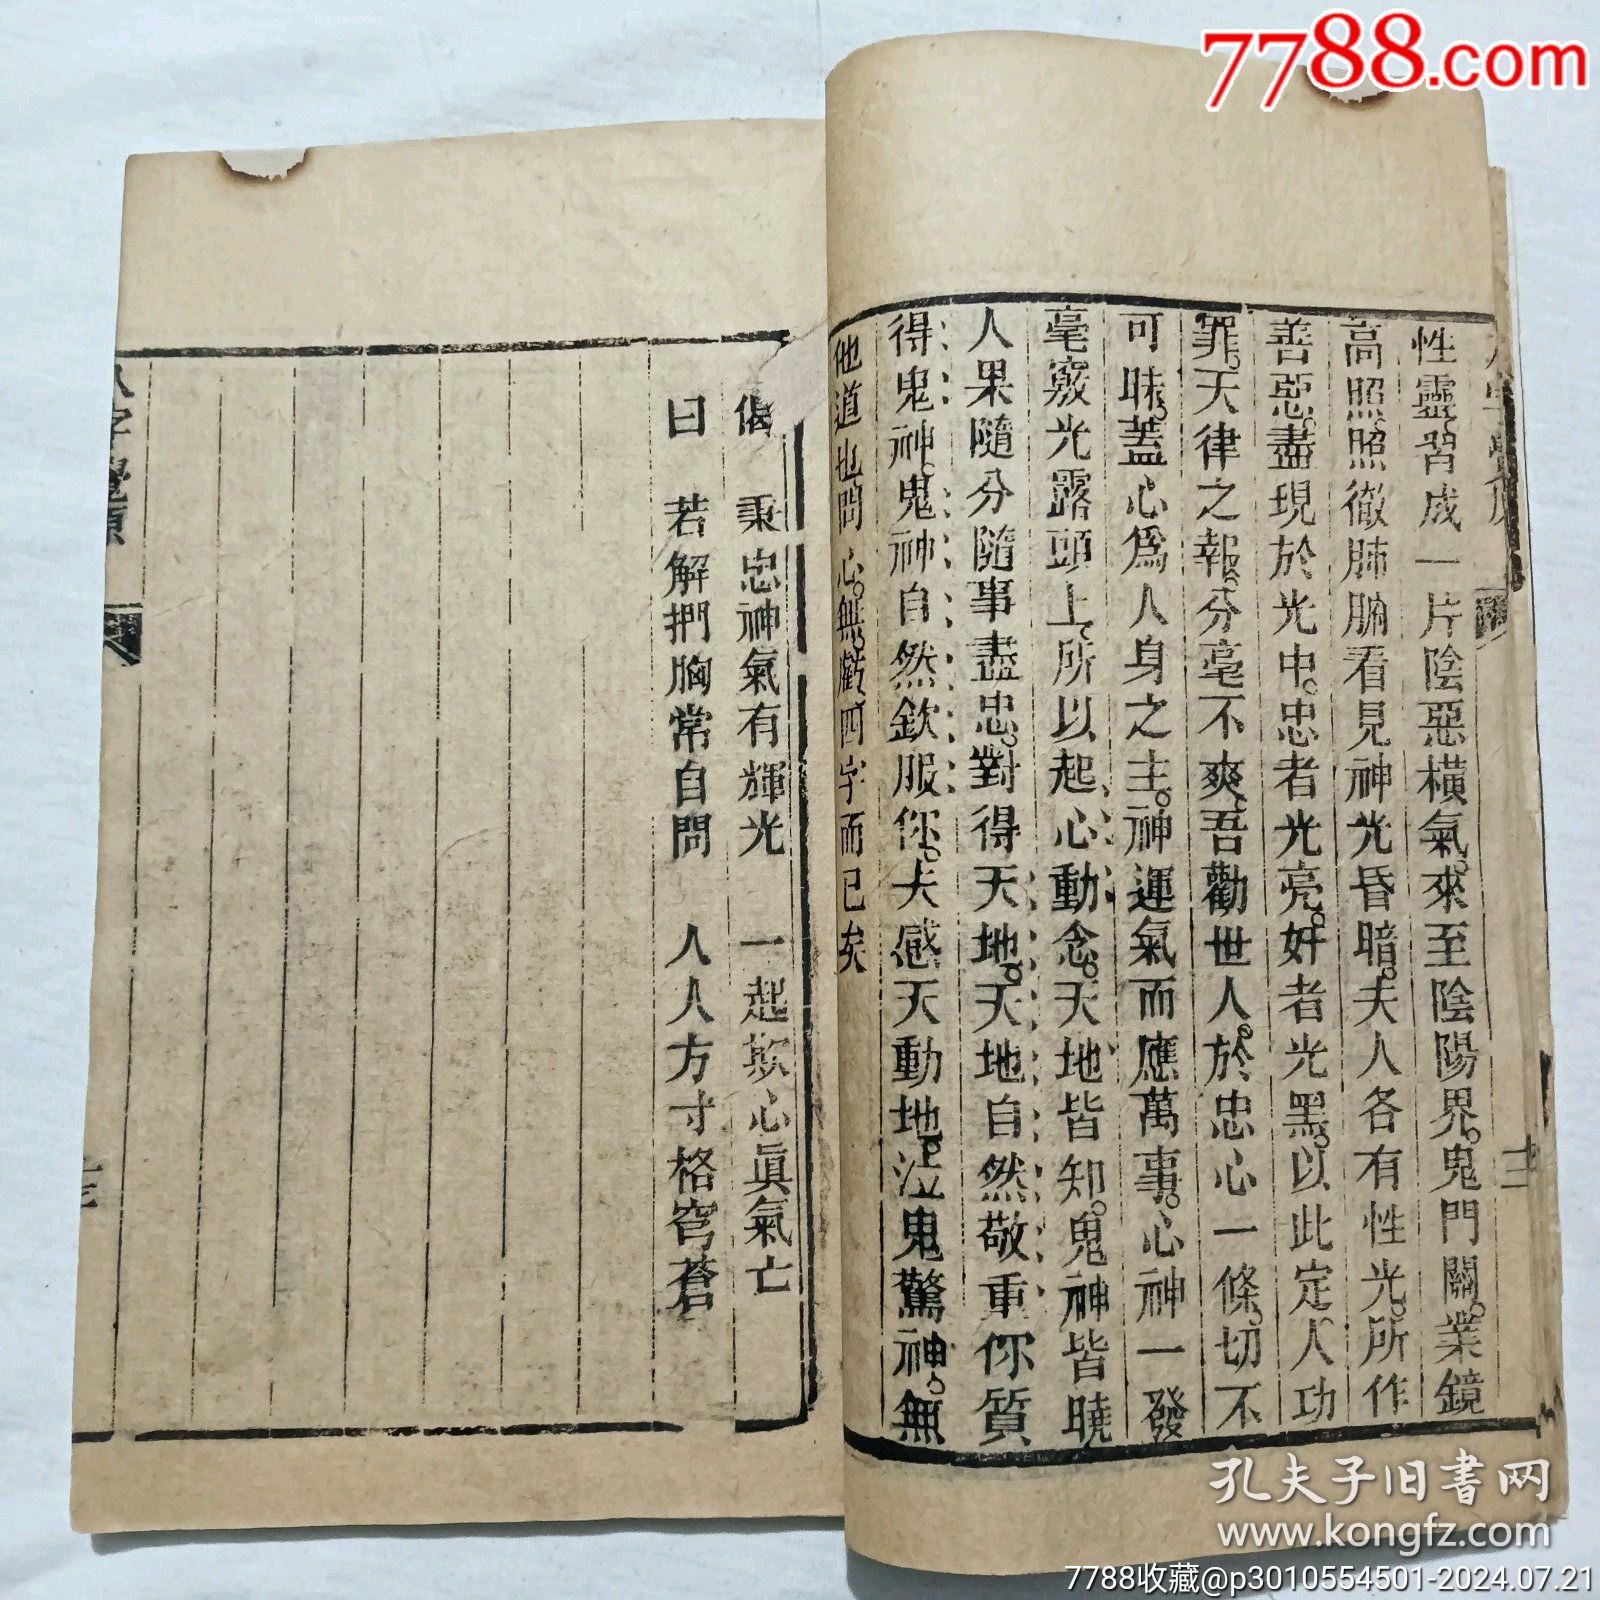 7788.com
性靈習成一片陰惡橫氣。來至陰陽界。鬼門關。業鏡
高照。照徹肺腑看見神光昏暗。夫人各有性光。所作
善惡。盡現於光中。忠者光亮。奸者光黑。以此定人功
罪。天律之報。分毫不爽。吾勸世人。於忠心一條。切不
可昧。蓋心爲人身之主。神運氣而應萬事。心神一發
毫竅光露頭上。所以起心動念。天地皆知。鬼神皆曉
人果隨分隨事盡忠。對得天地。天地自然敬重你質
得鬼神。鬼神自然欽服你。夫感天動地。泣鬼驚神。無
他道也問心。無虧四字而已矣
十二
偈 秉忠神氣有輝光 一起欺心眞氣亡
曰 若解捫胸常自問 人人方寸格穹蒼
八字覺原
孔夫子旧書网
www.kongfz.com
7788收藏@p3010554501-2024.07.21